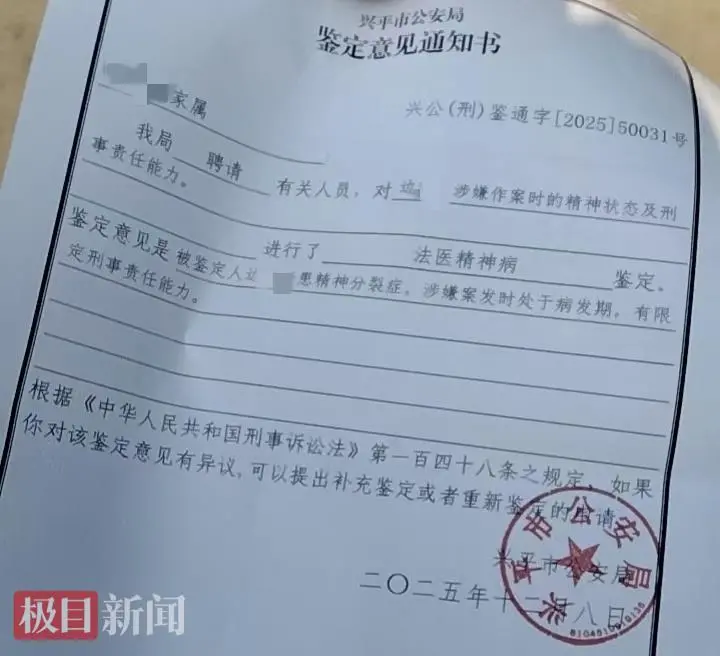 兴平市公安局
鉴定意见通知书
兴公(刑)鉴通字[2025]50031号
家属
我局 聘请 有关人员，对 涉嫌作案时的精神状态及刑
事责任能力。
进行了 法医精神病 鉴定。
鉴定意见是 被鉴定人 患精神分裂症，涉嫌案发时处于病发期，有限
定刑事责任能力。
根据《中华人民共和国刑事诉讼法》第一百四十八条之规定，如果
你对该鉴定意见有异议，可以提出补充鉴定或者重新鉴定的申请。
兴平市公安局
二〇二五年十二月八日
兴平市公安局
极目新闻